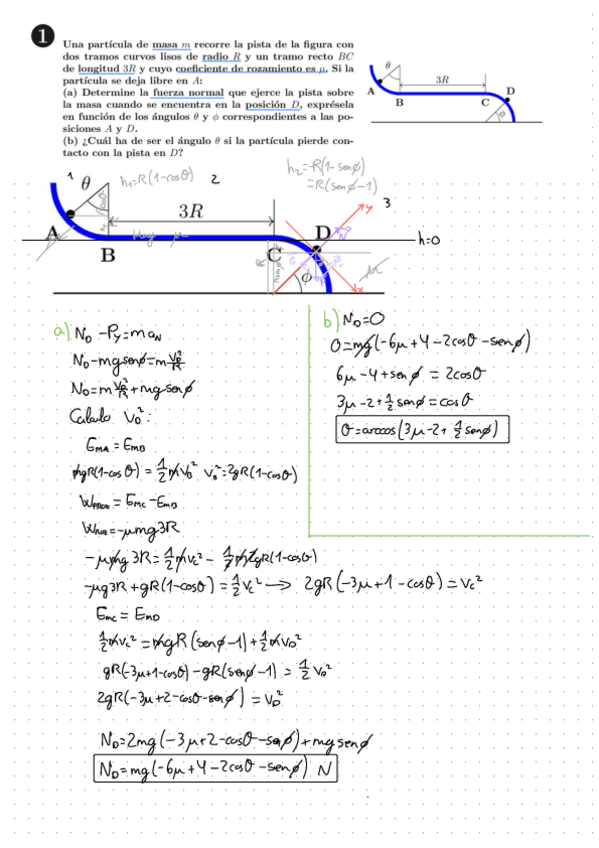 1
Una partícula de masa m recorre la pista de la figura con
dos tramos curvos lisos de radio R y un tramo recto BC
de longitud 3R y cuyo coeficiente de rozamiento es μ. Si la
partícula se deja libre en A:
(a) Determine la fuerza normal que ejerce la pista sobre
la masa cuando se encuentra en la posición D, exprésela
en función de los ángulos θ y ϕ correspondientes a las po-
siciones A y D.
(b) ¿Cuál ha de ser el ángulo θ si la partícula pierde con-
tacto con la pista en D?
θ
3R
A
B
C
D
1
θ
h₁=R(1-cosθ)
2
h₂=-R(1-senϕ)
=R(senϕ-1)
3
y
3R
A
B
C
D
N
h=0
ϕ
x
a) N_D -P_y=ma_N
N_D-mgsenϕ=m V_D²/R
N_D=m V_D²/R+mgsenϕ
Calculo V_D²:
E_mA = E_mB
mgR(1-cosθ) = 1/2 mV_B² V_B²=2gR(1-cosθ)
W_FROZ = E_mC -E_mB
W_FROZ=-μmg3R
-μmg 3R= 1/2 mV_C² - 1/2 m2gR(1-cosθ)
-μg3R+gR(1-cosθ) = 1/2 V_C² → 2gR(-3μ+1-cosθ) = V_C²
E_mC = E_mD
1/2 mV_C² = mgR(senϕ-1)+1/2 mV_D²
gR(-3μ+1-cosθ)-gR(senϕ-1) = 1/2 V_D²
2gR(-3μ+2-cosθ-senϕ) = V_D²
N_D=2mg(-3μ+2-cosθ-senϕ)+mgsenϕ
N_D=mg(-6μ+4-2cosθ-senϕ) N
b) N_D=0
0=mg(-6μ+4-2cosθ-senϕ)
6μ-4+senϕ = 2cosθ
3μ-2+1/2 senϕ=cosθ
θ=arccos(3μ-2+1/2 senϕ)